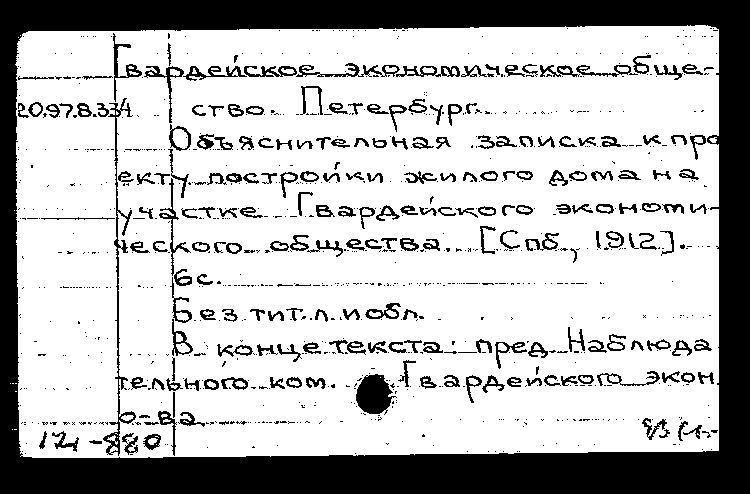 Гвардейское экономическое обще-
20.97.8.334 ство. Петербург.
Объяснительная записка к про
екту постройки жилого дома на
участке Гвардейского экономи-
ческого общества. [Спб, 1912].
6с.
Без тит. л. и обл.
В конце текста: пред. Наблюда
тельного ком. Гвардейского экон.
о-ва
121-880